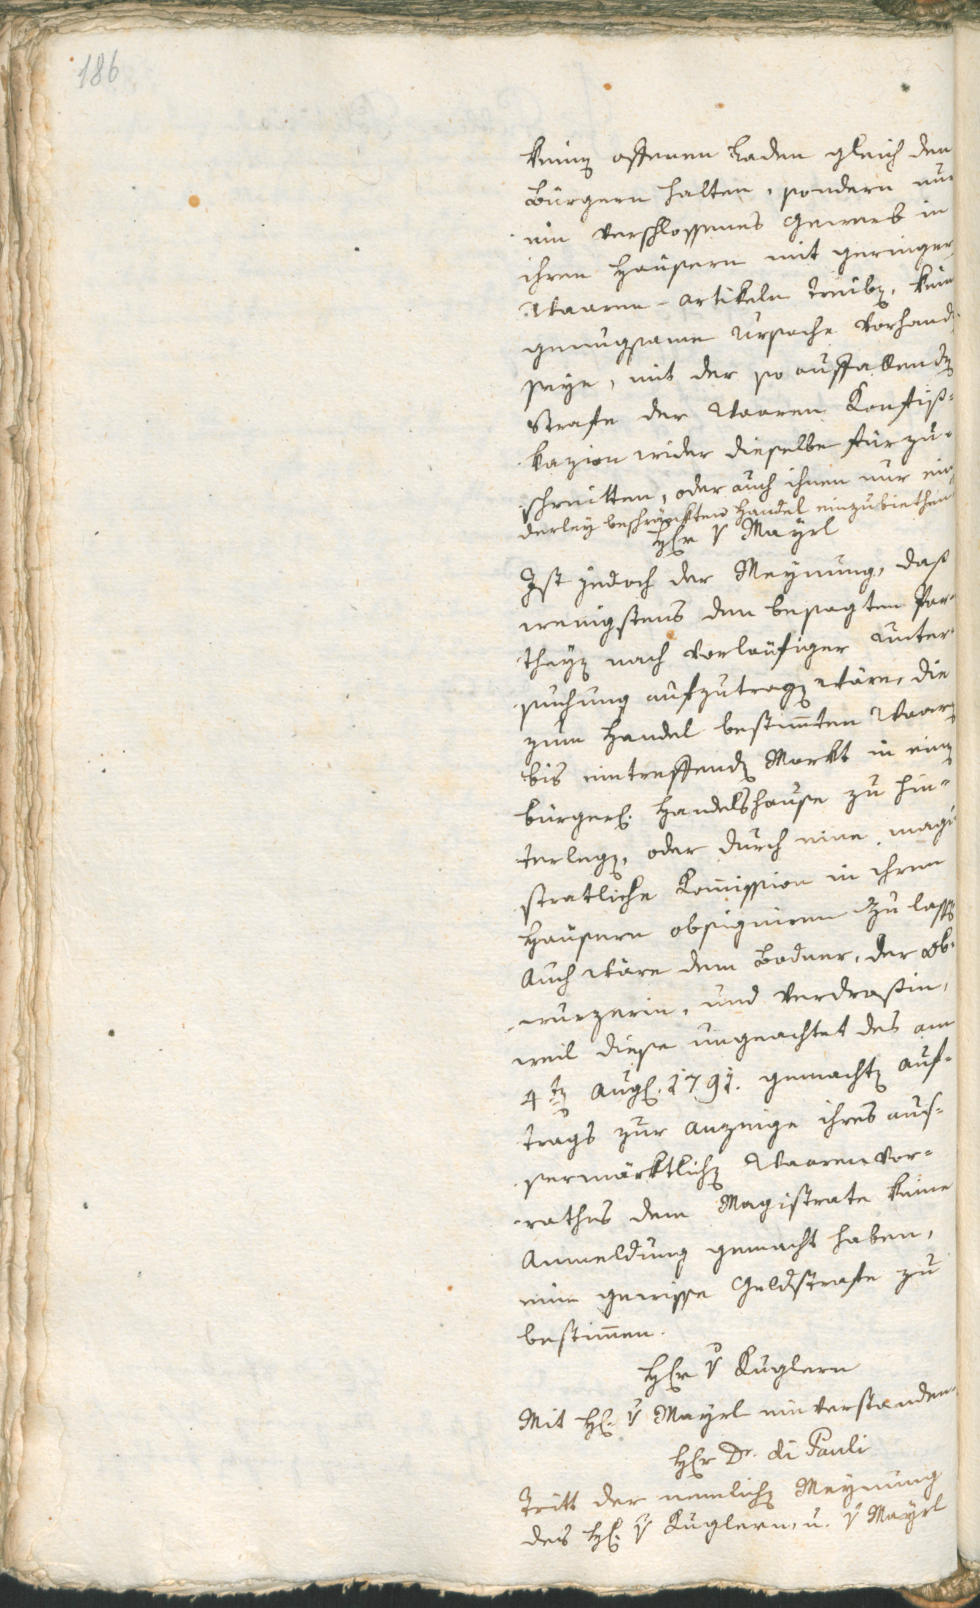 186
keinen offenen Laden gleich den
Bürgern halten, sondern nur
ein verschlossenes Gewerb in
ihren Häusern mit geringen
Waaren-artikeln treiben, keine
genugsame Ursache vorhanden
seye, mit der so auffallenden
Strafe der Waaren Konfiß-
kazion wider dieselbe fürzu-
schreitten, oder auch ihnen nur ein
derley beschränkten Handel einzubiethen
Herr v Mayrl
Ist jedoch der Meynung, daß
wenigstens den besagten Par-
theyen nach vorläufiger Unter-
suchung aufzutragen wäre, die
zum Handel bestimmten Waaren
bis eintreffenden Markt in einem
bürgerl. Handelshause zu hin-
terlegen, oder durch eine magi
stratliche Kommission in ihren
Häusern obsigniren zu lassen
Auch wäre dem Bodner, der Ob-
wurzerin, und Verdroßin,
weil diese ungeachtet des am
4ten Augl. 1791. gemachten Auf-
trags zur Anzeige ihres aus-
sermärktlichen Waarenvor-
rathes dem Magistrate keine
Anmeldung gemacht haben,
eine gewisse Geldstrafe zu
bestimmen.
Herr v Kuglern
Mit H. v Mayrl einverstanden.
Herr Dr. di Pauli
Tritt der nemlichen Meynung
des H. v Kuglern, u. v Mayrl